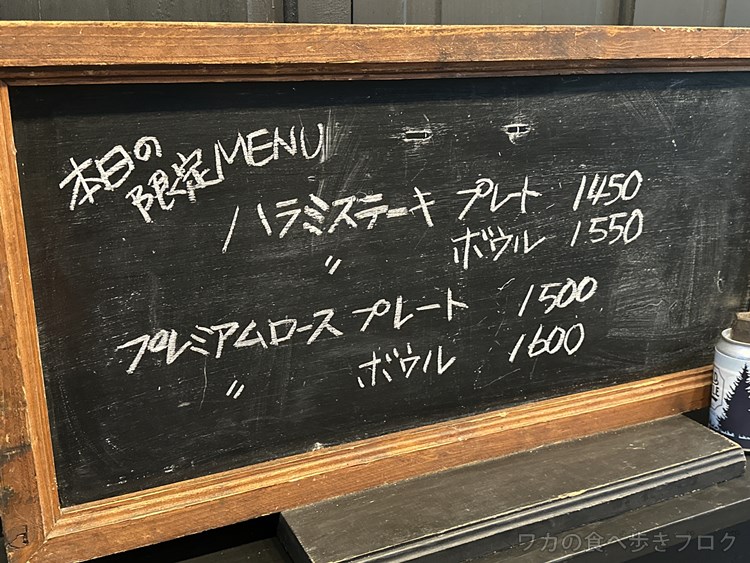 本日の
限定MENU
ハラミステーキ プレート 1450
〃 ボウル 1550
プレミアムロース プレート 1500
〃 ボウル 1600
ワカの食べ歩きブログ